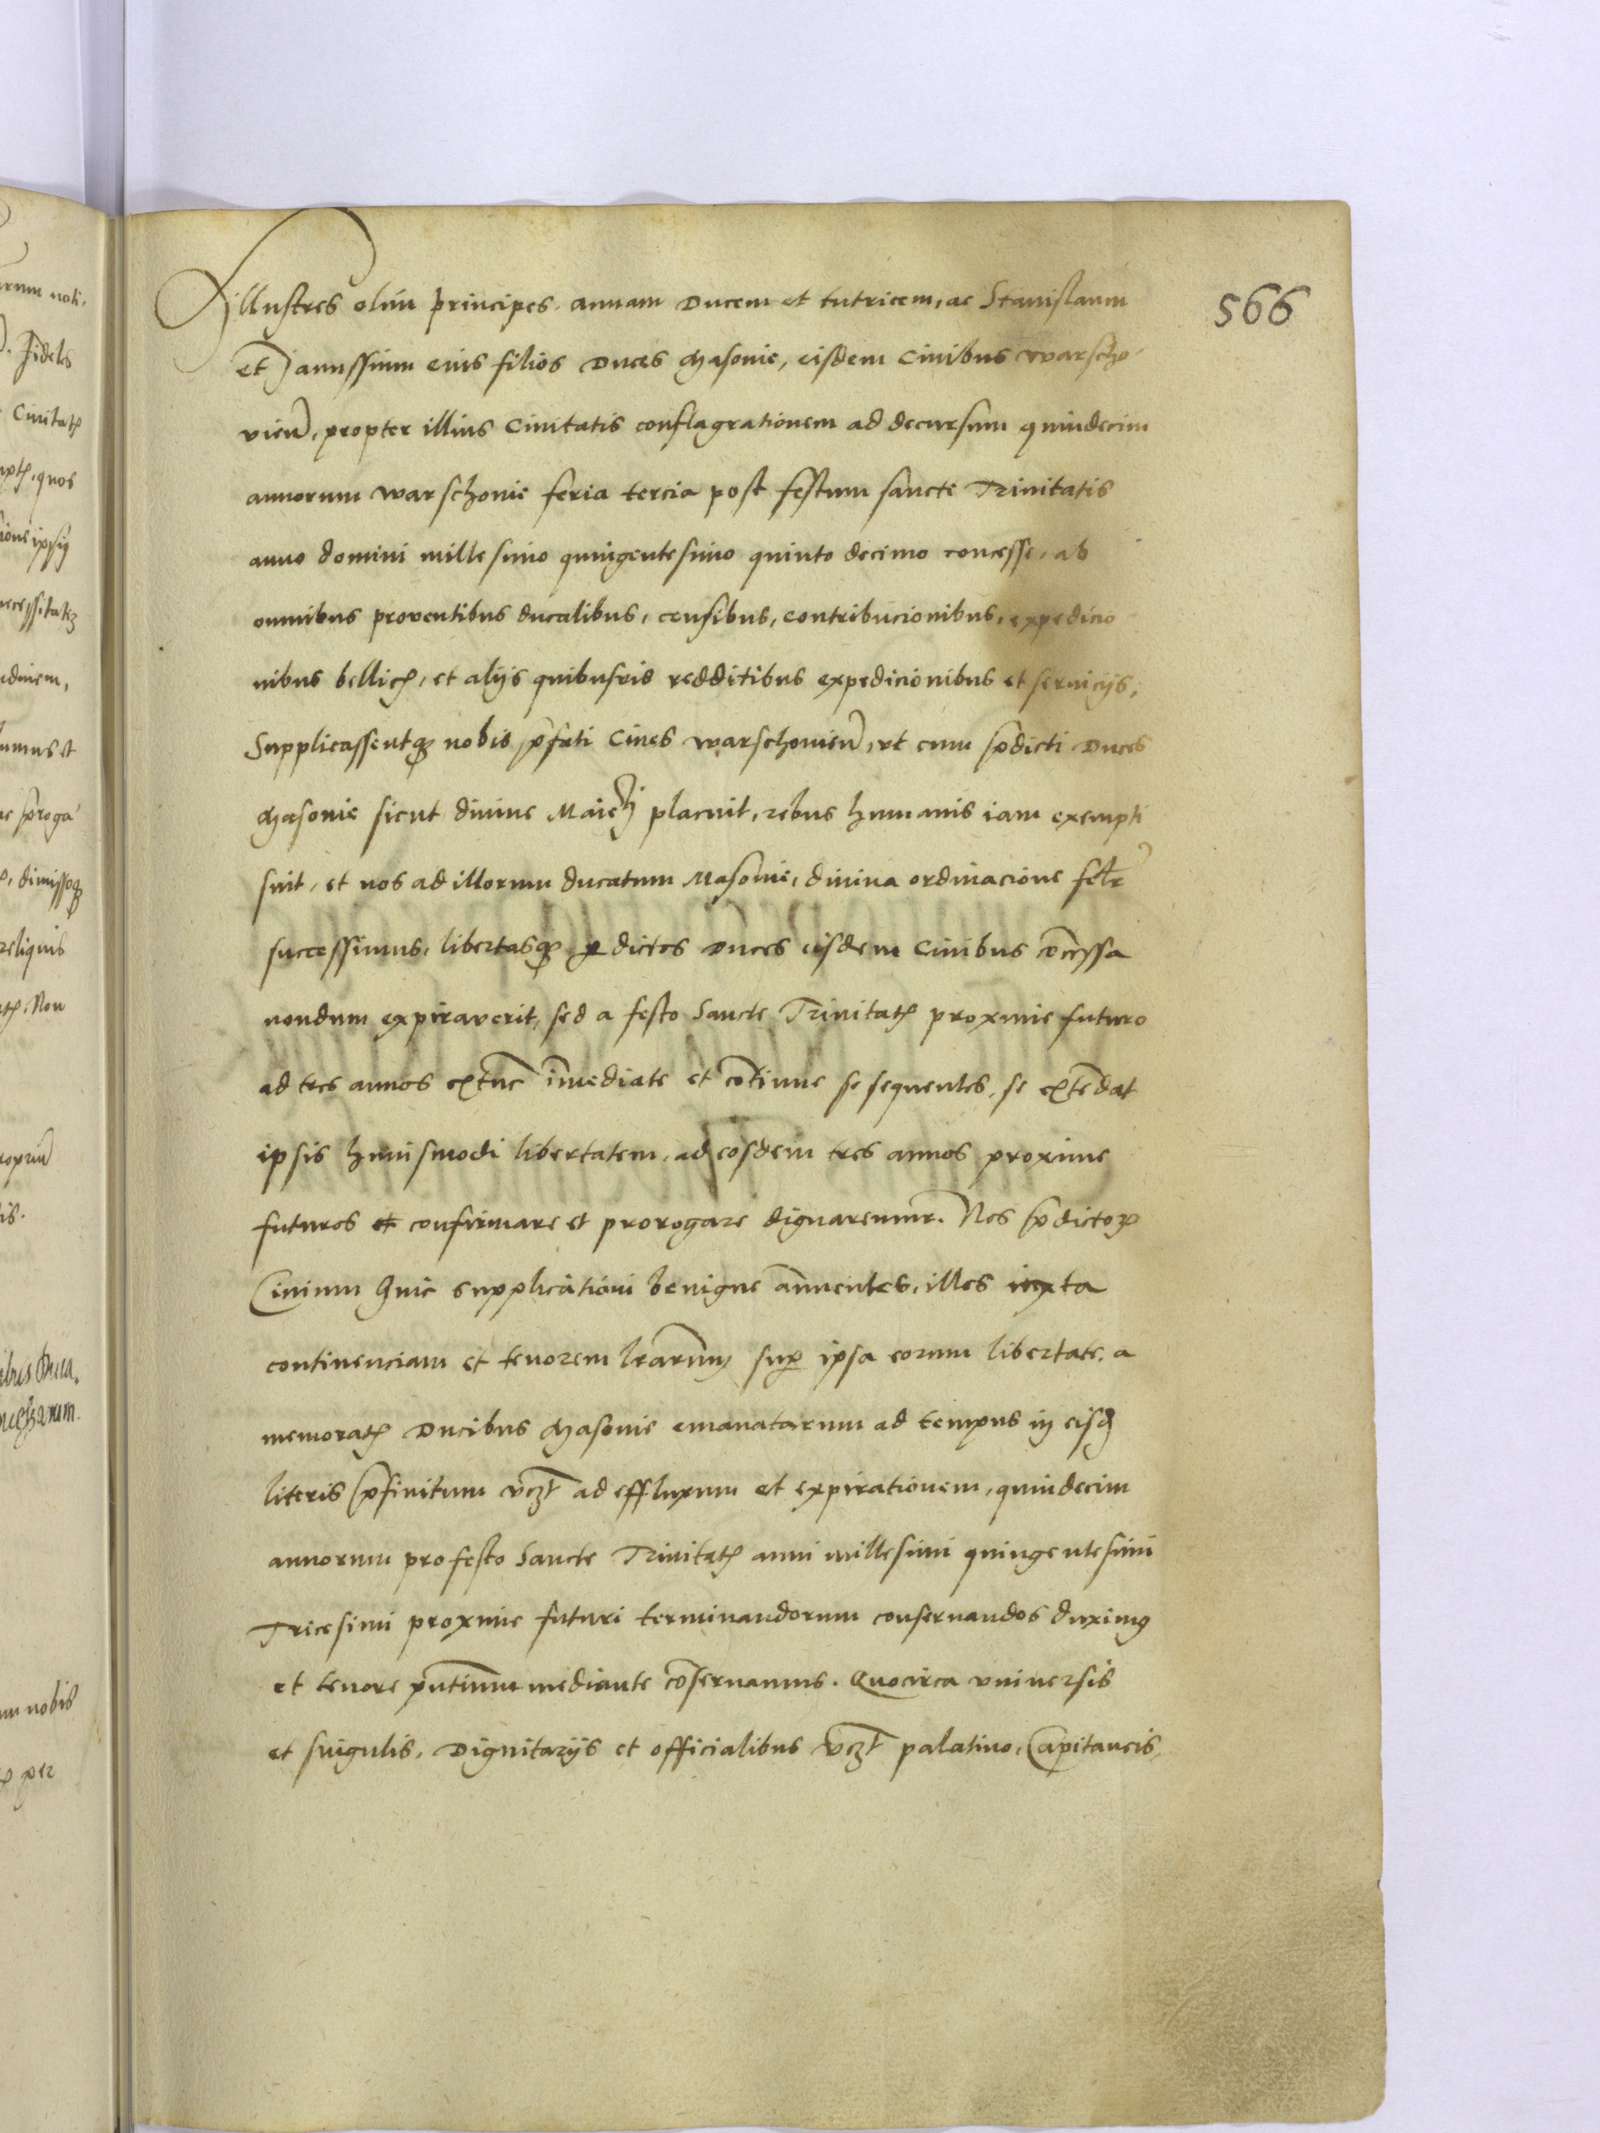 566
illustres olim principes, annam Ducem et tutricem, ac Stanislaum
et Janussium eius filios Duces Masovie, eisdem Civibus warscho
vien̄, propter illius Civitatis conflagrationem ad decursum quindecim
annorum warschovie feria tercia post festum sancte Trinitatis
anno domini millesimo quingentesimo quinto decimo concesse, ab
omnibus proventibus ducalibus, censibus, contribucionibus, expedicio
nibus bellicꝭ, et alijs quibusvis redditibus expedicionibus et servicijs,
Supplicassentqꝫ nobis p̄fati Cives warschovien̄, ut cum p̄dicti Duces
Masovie sicut divine Maiēti placuit, rebus humanis iam exempti
sint, et nos ad illorum ducatum Masovie, divina ordinacione
successimus, libertasqꝫ ꝑ dictos Duces eisdem Civibus cōcessa
nondum expiraverit, sed a festo Sancte Trinitatꝭ proxime futuro
ad tres annos extūc īmediate et cōtinue se sequentes, se extēdat
ipsis huiusmodi libertatem, ad eosdem tres annos proxime
futuros et confirmare et prorogare dignaremur. Nos p̄dictoꝝ
Civium huic supplicationi benigne ānuentes, illos iuxta
continenciam et tenorem l̄rarum, suꝑ ipsa eorum libertate, a
memoratꝭ Ducibus Masovie emanatarum ad tempus in eisdꝫ
literis p̄finitum vꝫt ad effluxum et expirationem, quindecim
annorum pro festo Sancte Trinitatꝭ anni millesimi quingentesimi
Tricesimi proxime futuri terminandorum conservandos duximꝯ
et tenore p̄ntium mediante cōservamus. Quocirca universis
et singulis, Dignitarijs et officialibus vꝫt palatino, Capitaneis,